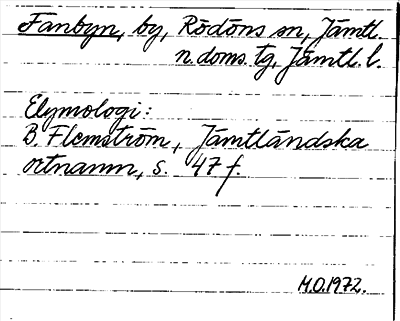 Fanbyn, by, Rödöns sn, Jämtl.
n. doms. tg, Jämtl. l.
Etymologi:
B. Flemström, Jämtländska
ortnamn, s. 47 f.
M.O.1972.